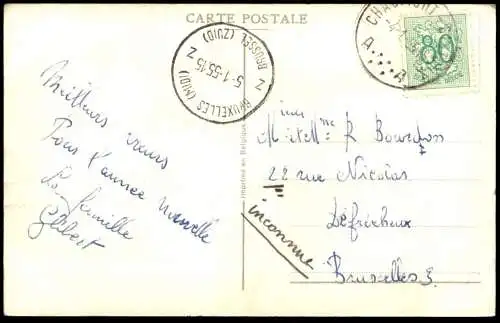 CARTE POSTALE
Meilleurs vœux
Pour l'année nouvelle
La famille
Gilbert
BRUXELLES (MIDI)
Z 5-1-55·15 Z
BRUSSEL (ZUID)
A A
80
Imprimé en Belgique
R Bourdon
22 rue Nicolas
Défrécheux
Bruxelles 3.
inconnue